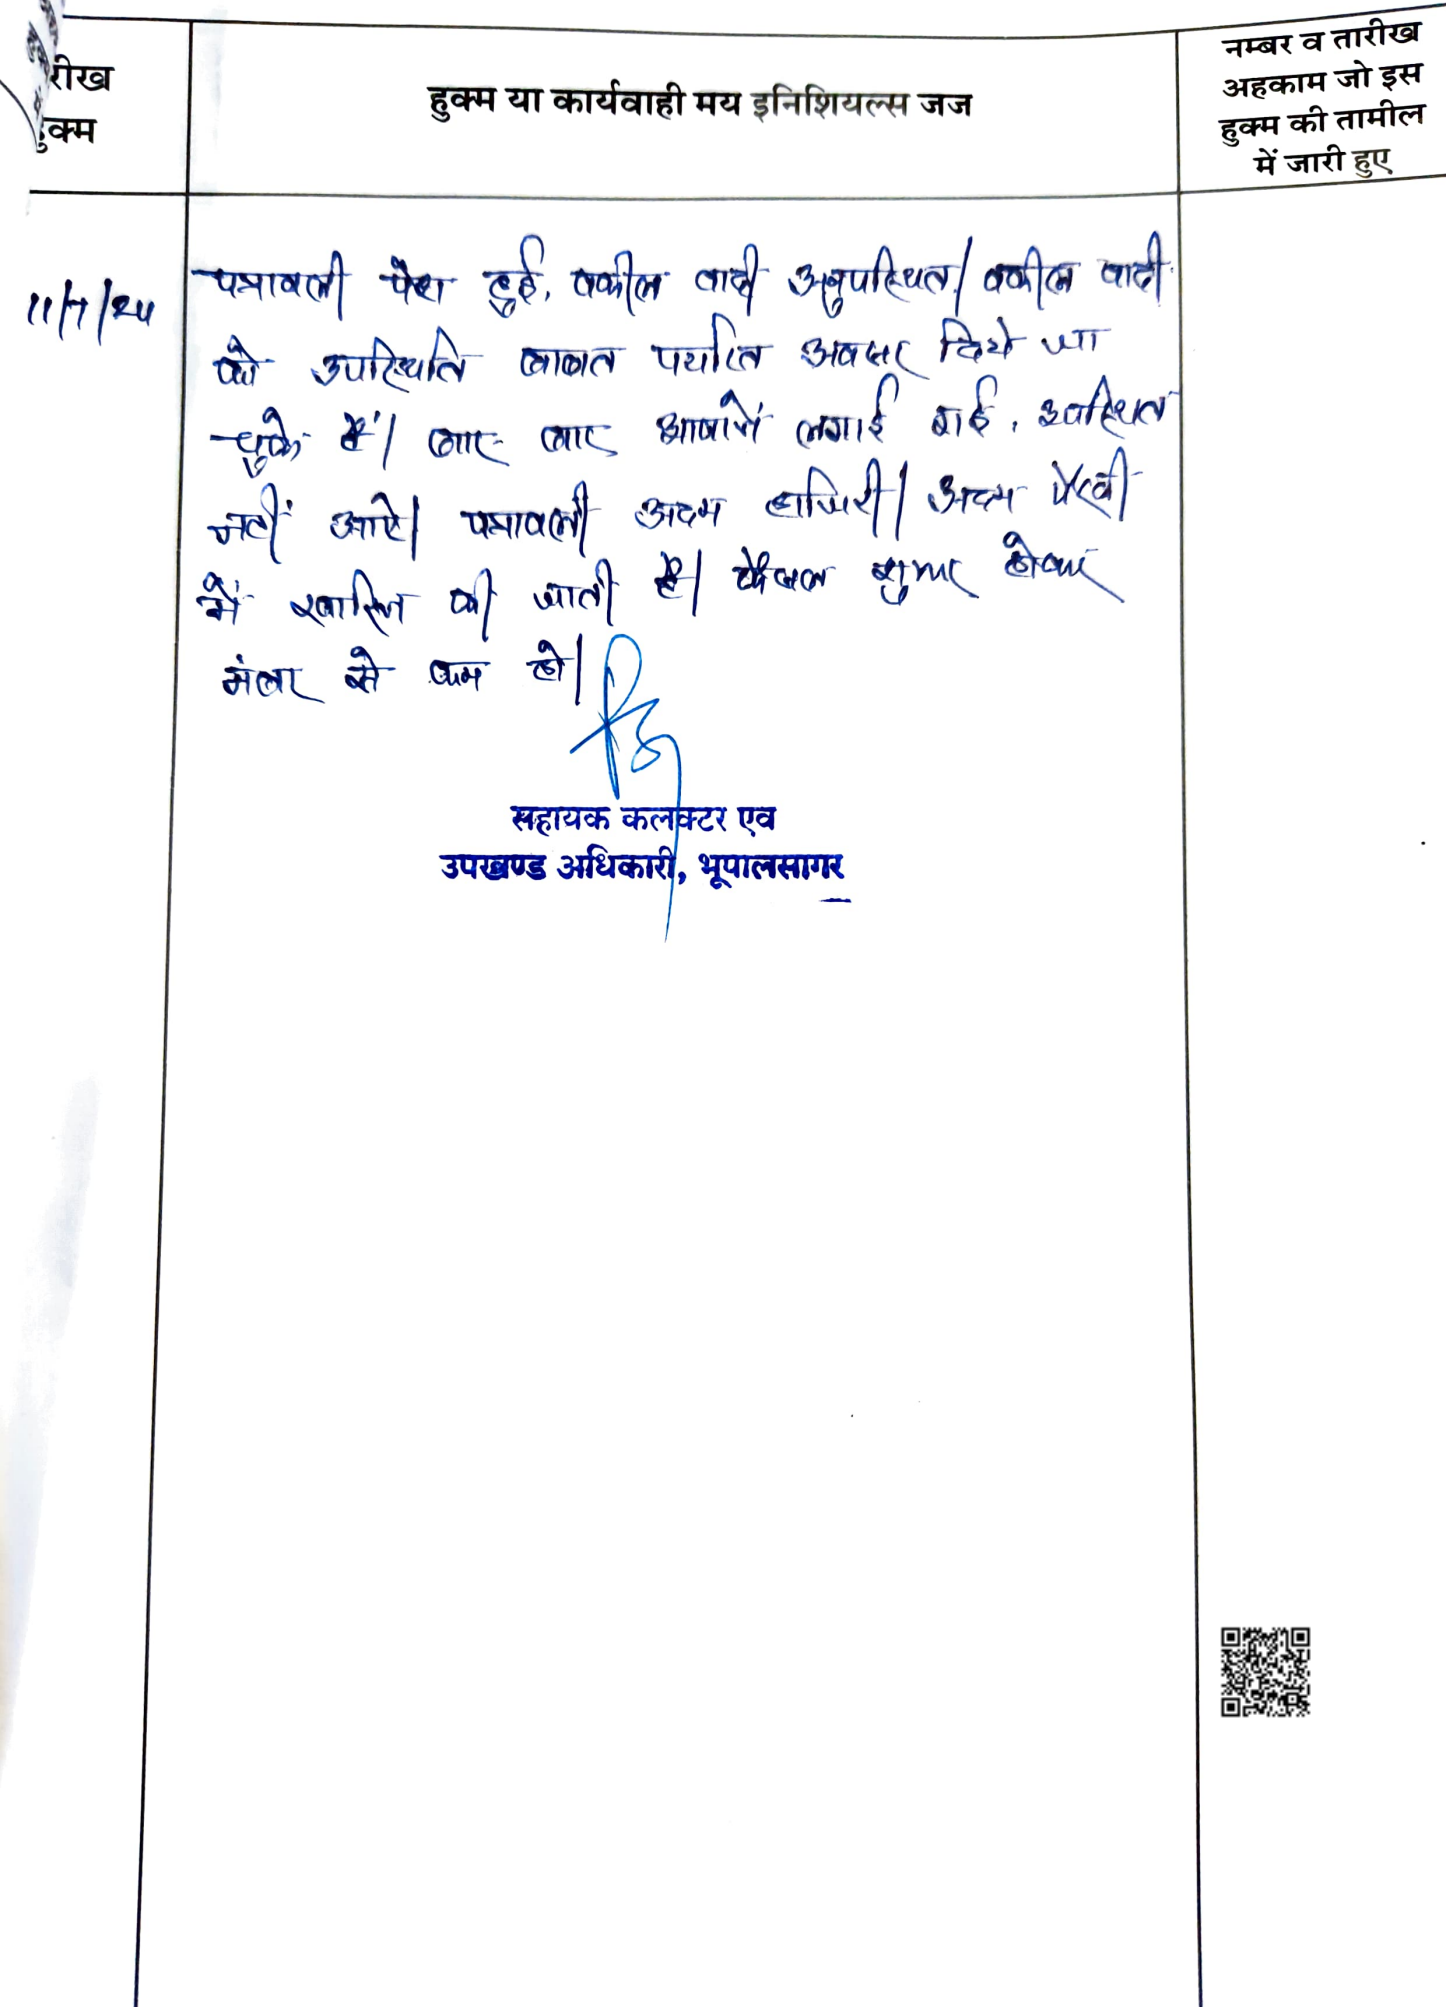 रीख
हुक्म
हुक्म या कार्यवाही मय इनिशियल्स जज
नम्बर व तारीख
अहकाम जो इस
हुक्म की तामील
में जारी हुए
11/7/24
पत्रावली पेश हुई, वकील वादी अनुपस्थित। वकील वादी
को उपस्थिति बाबत पर्याप्त अवसर दिये जा
चुके हैं। बार-बार आवाजें लगाई गई, उपस्थित
नहीं आये। पत्रावली अदम हाजिरी/अदम पैरवी
में खारिज की जाती है। फैसल शुमार होकर
नंबर से कम हो।
सहायक कलक्टर एव
उपखण्ड अधिकारी, भूपालसागर